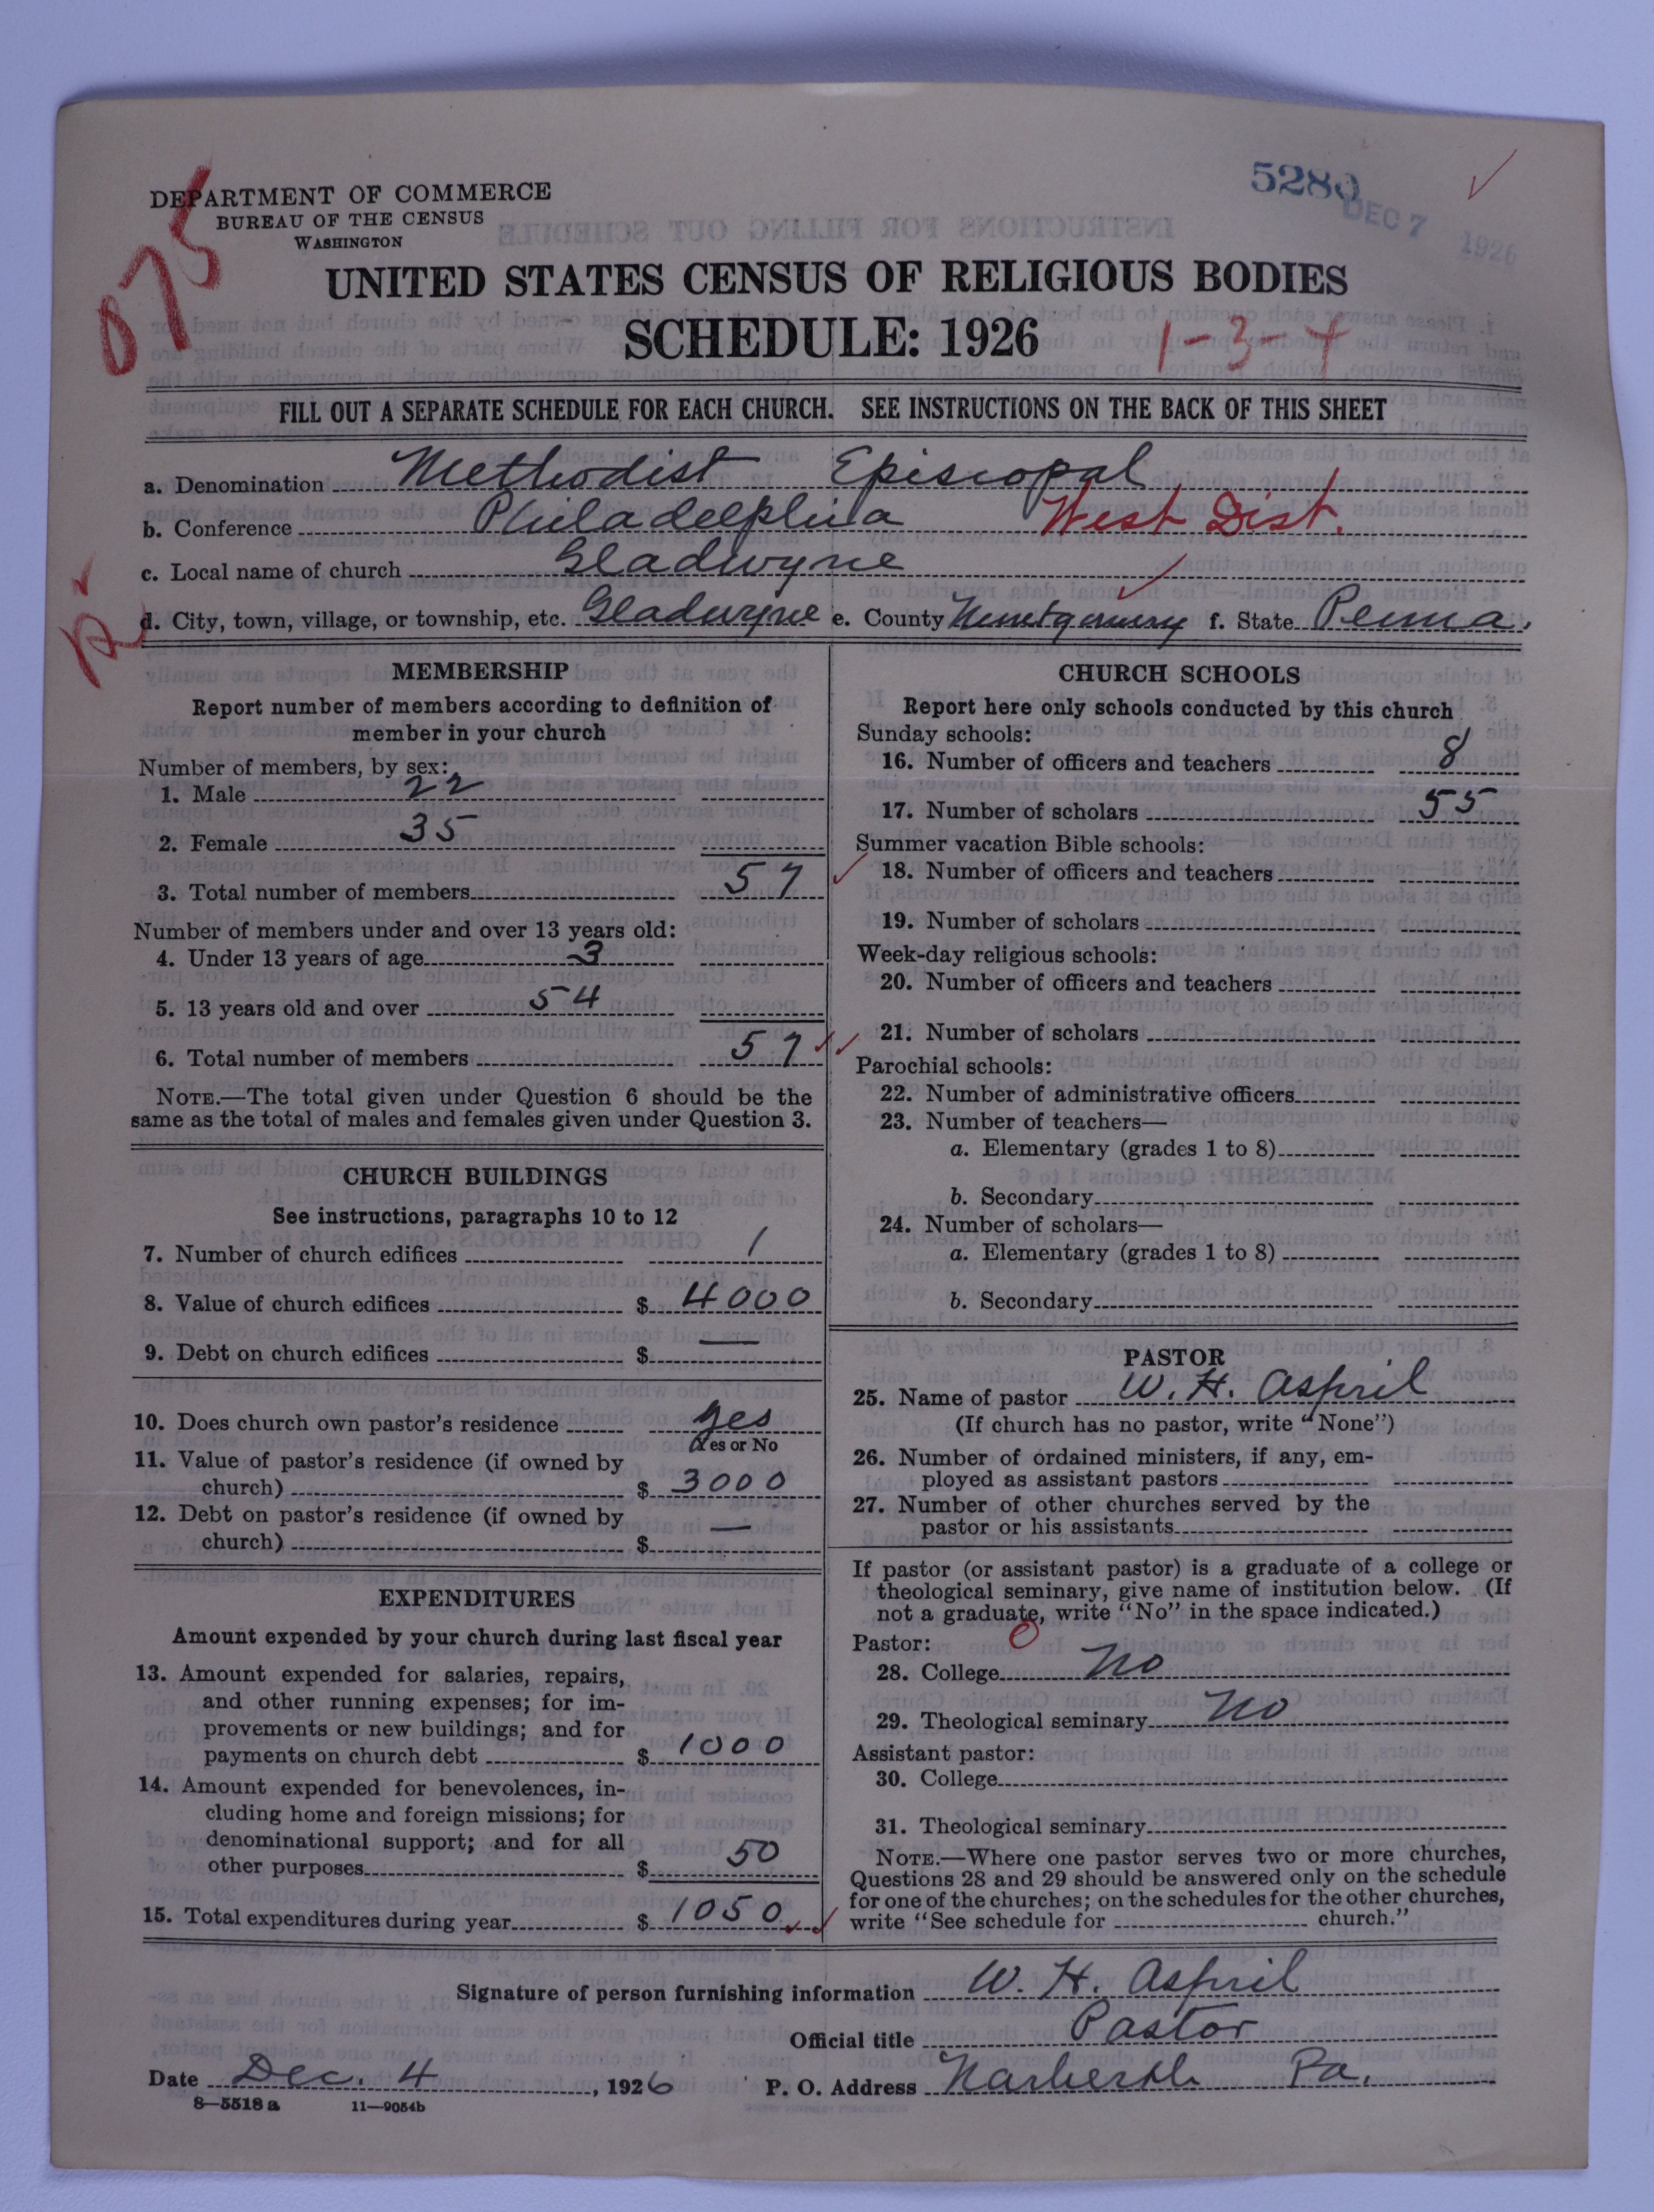 5280
DEC 7 1926
DEPARTMENT OF COMMERCE
BUREAU OF THE CENSUS
WASHINGTON
075
UNITED STATES CENSUS OF RELIGIOUS BODIES
SCHEDULE: 1926
1-3-4
FILL OUT A SEPARATE SCHEDULE FOR EACH CHURCH. SEE INSTRUCTIONS ON THE BACK OF THIS SHEET
a. Denomination Methodist Episcopal
b. Conference Philadelphia West Dist.
c. Local name of church Gladwyne
d. City, town, village, or township, etc. Gladwyne e. County Montgomery f. State Penna.
MEMBERSHIP
Report number of members according to definition of
member in your church
Number of members, by sex:
1. Male 22
2. Female 35
3. Total number of members 57
Number of members under and over 13 years old:
4. Under 13 years of age 3
5. 13 years old and over 54
6. Total number of members 57
NOTE.—The total given under Question 6 should be the
same as the total of males and females given under Question 3.
CHURCH BUILDINGS
See instructions, paragraphs 10 to 12
7. Number of church edifices 1
8. Value of church edifices $ 4000
9. Debt on church edifices $ —
10. Does church own pastor's residence yes
Yes or No
11. Value of pastor's residence (if owned by
church) $ 3000
12. Debt on pastor's residence (if owned by
church) $ —
EXPENDITURES
Amount expended by your church during last fiscal year
13. Amount expended for salaries, repairs,
and other running expenses; for im-
provements or new buildings; and for
payments on church debt $ 1000
14. Amount expended for benevolences, in-
cluding home and foreign missions; for
denominational support; and for all
other purposes $ 50
15. Total expenditures during year $ 1050
CHURCH SCHOOLS
Report here only schools conducted by this church
Sunday schools:
16. Number of officers and teachers 8
17. Number of scholars 55
Summer vacation Bible schools:
18. Number of officers and teachers
19. Number of scholars
Week-day religious schools:
20. Number of officers and teachers
21. Number of scholars
Parochial schools:
22. Number of administrative officers
23. Number of teachers—
a. Elementary (grades 1 to 8)
b. Secondary
24. Number of scholars—
a. Elementary (grades 1 to 8)
b. Secondary
PASTOR
25. Name of pastor W. H. Aspril
(If church has no pastor, write "None")
26. Number of ordained ministers, if any, em-
ployed as assistant pastors
27. Number of other churches served by the
pastor or his assistants
If pastor (or assistant pastor) is a graduate of a college or
theological seminary, give name of institution below. (If
not a graduate, write "No" in the space indicated.)
Pastor: 0
28. College No
29. Theological seminary No
Assistant pastor:
30. College
31. Theological seminary
NOTE.—Where one pastor serves two or more churches,
Questions 28 and 29 should be answered only on the schedule
for one of the churches; on the schedules for the other churches,
write "See schedule for church."
Signature of person furnishing information W. H. Aspril
Official title Pastor
Date Dec. 4, 1926 P. O. Address Narberth Pa.
8—5518 a 11—9054b